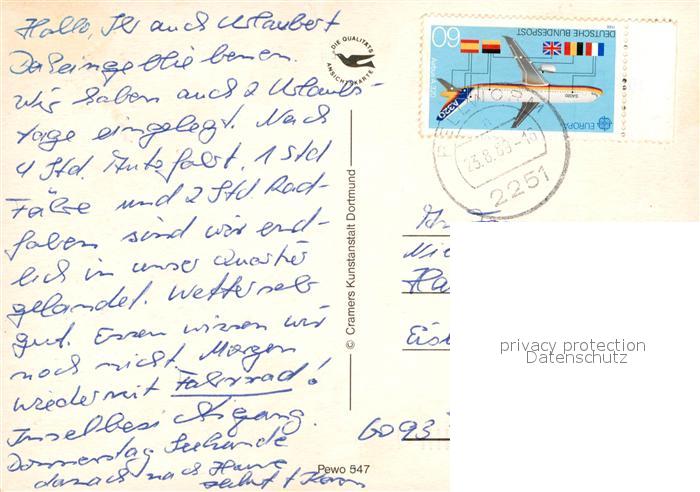 Hallo, Ihr auch Urlaubert
Daheingebliebenen.
Wir haben auch 2 Urlaubs-
tage eingelegt. Nach
4 Std. Autofahrt. 1 Std
Fähre und 2 Std Rad-
fahren sind wir end-
lich in unser Quartier
gelandet. Wetter sehr
gut. Essen wissen wir
noch nicht. Morgen
wieder mit Fahrrad!
Inselbesichtigung.
Donnerstag Seehunde
danach nach Hause
DIE QUALITÄTS
ANSICHTSKARTE
© Cramers Kunstanstalt Dortmund
Pewo 547
DEUTSCHE BUNDESPOST
60
Airbus A320
A320
EUROPA
23.8.89-16
2251
An
Nie
Ha
Eis
6093
privacy protection
Datenschutz